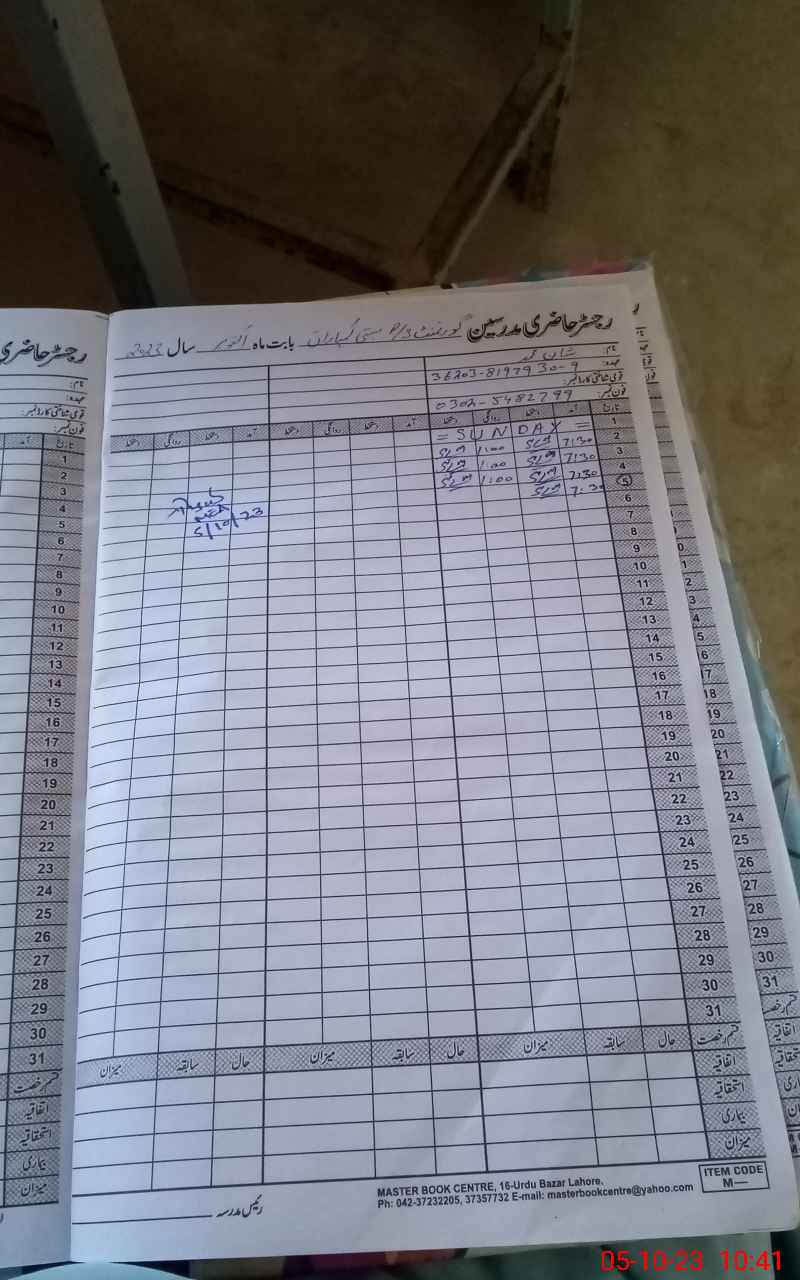 رجسٹر حاضری مدرسین گورنمنٹ P/S بستی کمہاراں بابت ماہ اکتوبر سال 2023
نام:
عہدہ: 36203-8197930-9
قومی شناختی کارڈ نمبر:
فون نمبر: 0302-5482799
تاریخ آمد دستخط روانگی دستخط آمد دستخط روانگی دستخط آمد دستخط روانگی دستخط
1 = SUNDAY =
2 7:30 1:00
3 7:30 1:00
4 7:30 1:00
5 7:30
5/10/23
6
7
8
9
10
11
12
13
14
15
16
17
18
19
20
21
22
23
24
25
26
27
28
29
30
31
قسم رخصت حال سابقہ میزان حال سابقہ میزان حال سابقہ میزان
اتفاقیہ
استحقاقیہ
بیماری
میزان
رئیس مدرسہ
MASTER BOOK CENTRE, 16-Urdu Bazar Lahore.
Ph: 042-37232205, 37357732 E-mail: masterbookcentre@yahoo.com
ITEM CODE
M—
رجسٹر حاضری
نام:
عہدہ:
قومی شناختی کارڈ نمبر:
فون نمبر:
تاریخ آمد
1
2
3
4
5
6
7
8
9
10
11
12
13
14
15
16
17
18
19
20
21
22
23
24
25
26
27
28
29
30
31
قسم رخصت
اتفاقیہ
استحقاقیہ
بیماری
میزان
05-10-23 10:41